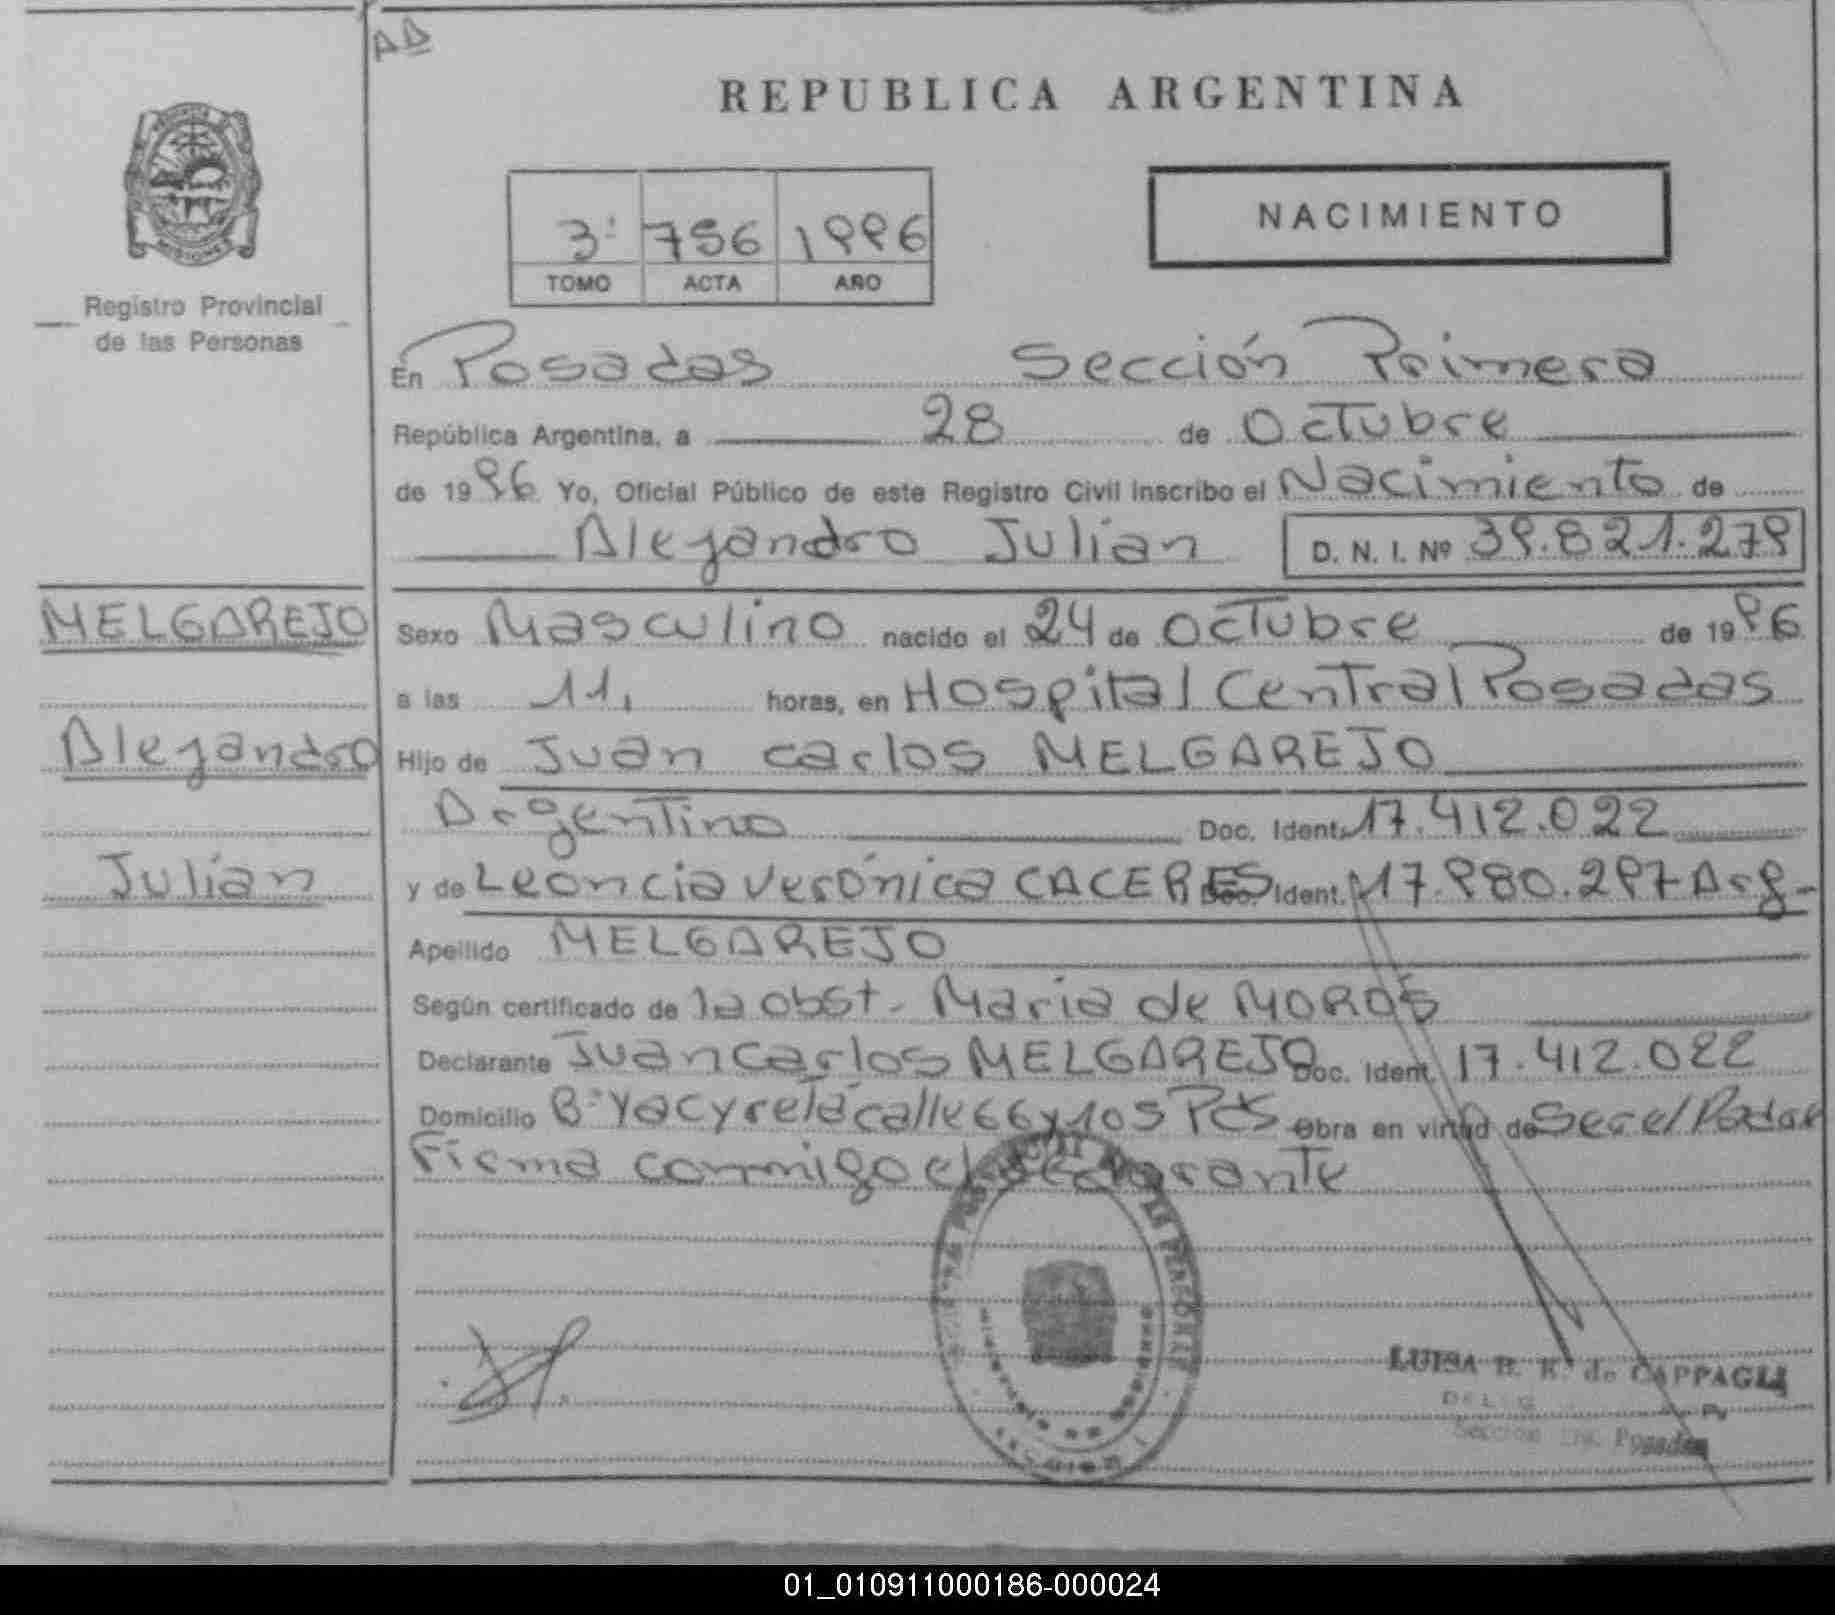 AD
REPUBLICA ARGENTINA
NACIMIENTO
3º 756 1996
TOMO ACTA AÑO
MISIONES
Registro Provincial
de las Personas
En Posadas Sección Primera
República Argentina, a 28 de Octubre
de 1996 Yo, Oficial Público de este Registro Civil inscribo el Nacimiento de
Alejandro Julian D. N. I. Nº 39.821.279
MELGAREJO
Alejandro
Julián
Sexo Masculino nacido el 24 de Octubre de 1996
a las 11, horas, en Hospital Central Posadas
Hijo de Juan Carlos MELGAREJO
Argentino Doc. Ident. 17.412.022
y de Leoncia Verónica CACERES Doc. Ident. 17.980.297 Arg-
Apellido MELGAREJO
Según certificado de la obst- Maria de MOROS
Declarante Juan Carlos MELGAREJO Doc. Ident. 17.412.022
Domicilio Bº Yacyretá calle 66 y 105 Pds Obra en virtud de Ser el Padre
Firma conmigo el declarante
LUISA de CAPPAGLI
Sección 1ra. Posadas
01_010911000186-000024